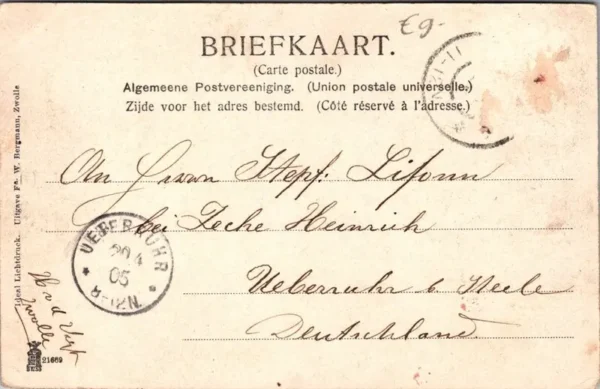 £9-
BRIEFKAART.
(Carte postale.)
Algemeene Postvereeniging. (Union postale universelle.)
Zijde voor het adres bestemd. (Côté réservé à l'adresse.)
11-12N
An Herrn Stepf. Lifonn
bei Zeche Heinrich
Ueberruhr b Steele
Deutschland.
UEBERRUHR
20 4
05
-12N.
Ideal Lichtdruck. Uitgave Fa. W. Bergmann, Zwolle
H v d Vert
Zwolle
21669